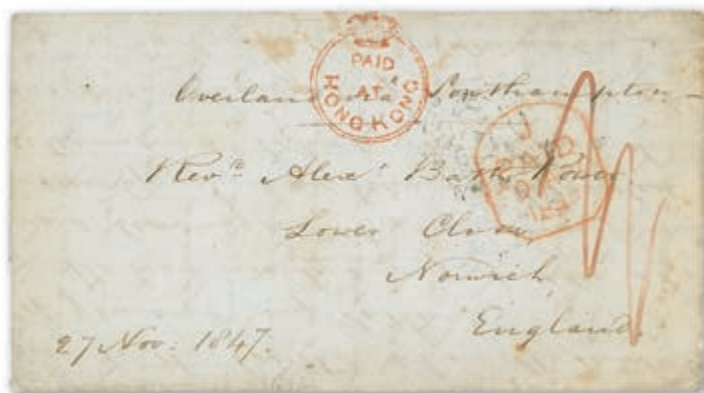 PAID AT HONG KONG
Overland via Southampton
Revd. Alexr. Bath Power
Lower Close
Norwich
England.
27 Nov: 1847.